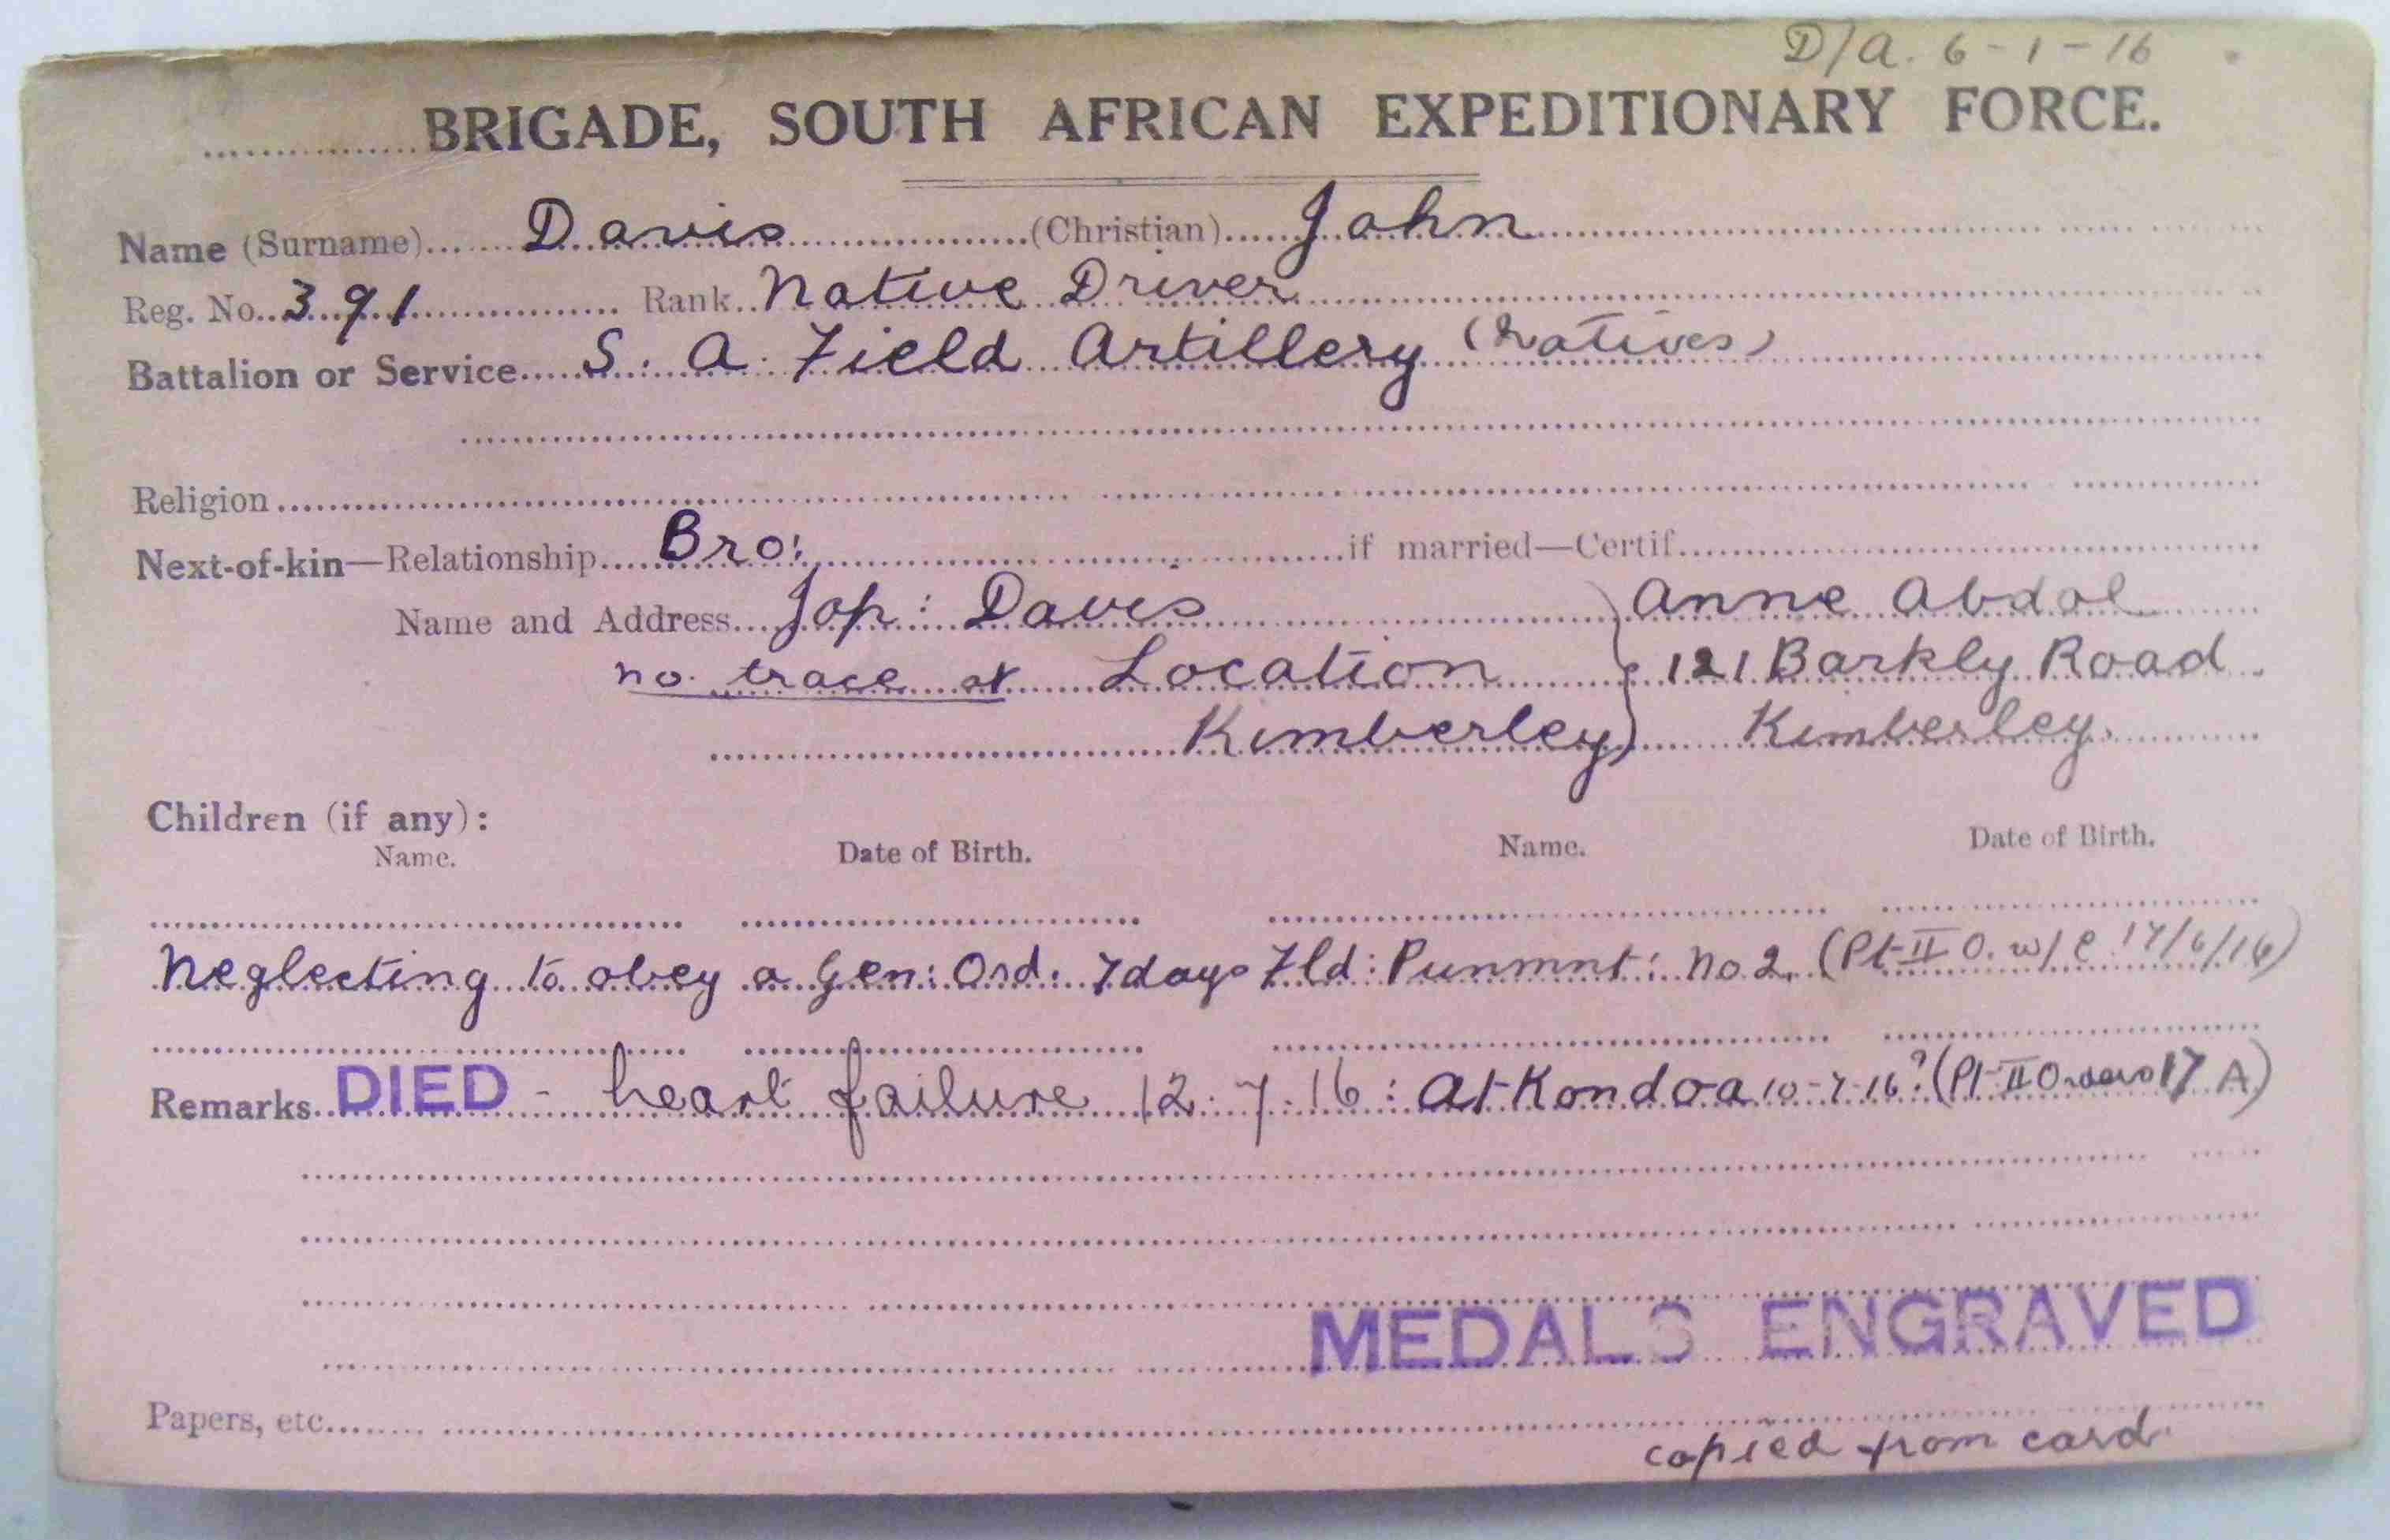 D/A. 6-1-16
BRIGADE, SOUTH AFRICAN EXPEDITIONARY FORCE.
Name (Surname) Davis (Christian) John
Reg. No. 391 Rank Native Driver
Battalion or Service S. A. Field Artillery (Natives)
Religion
Next-of-kin—Relationship Bro: if married—Certif.
Name and Address Jop: Davis } Anne Abdol
no trace at Location 121 Barkly Road
Kimberley Kimberley
Children (if any):
Name. Date of Birth. Name. Date of Birth.
Neglecting to obey a Gen: Ord. 7 days Fld: Punmnt: No 2. (Pt II O. w/e 17/6/16)
Remarks DIED - heart failure 12.7.16: At Kondoa 10-7-16? (Pt II Orders 17 A)
MEDALS ENGRAVED
Papers, etc.
copied from card